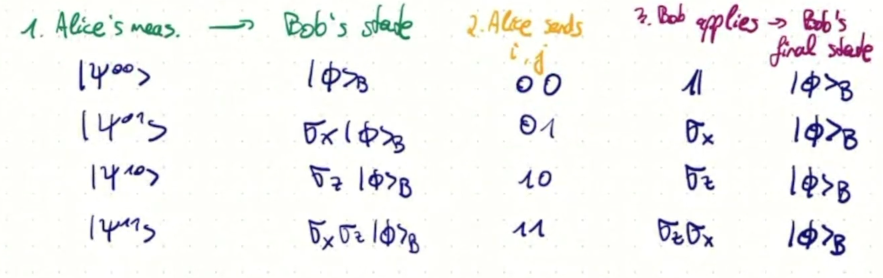 1. Alice's meas. → Bob's state 2. Alice sends i,j 3. Bob applies → Bob's final state
|ψ⁰⁰> |ϕ>_B 00 𝟙 |ϕ>_B
|ψ⁰¹> σ_x|ϕ>_B 01 σ_x |ϕ>_B
|ψ¹⁰> σ_z|ϕ>_B 10 σ_z |ϕ>_B
|ψ¹¹> σ_xσ_z|ϕ>_B 11 σ_zσ_x |ϕ>_B